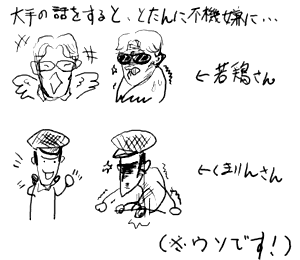 大手の話をすると、とたんに不機嫌に…
←若鶏さん
←くまりんさん
(※ウソです!)